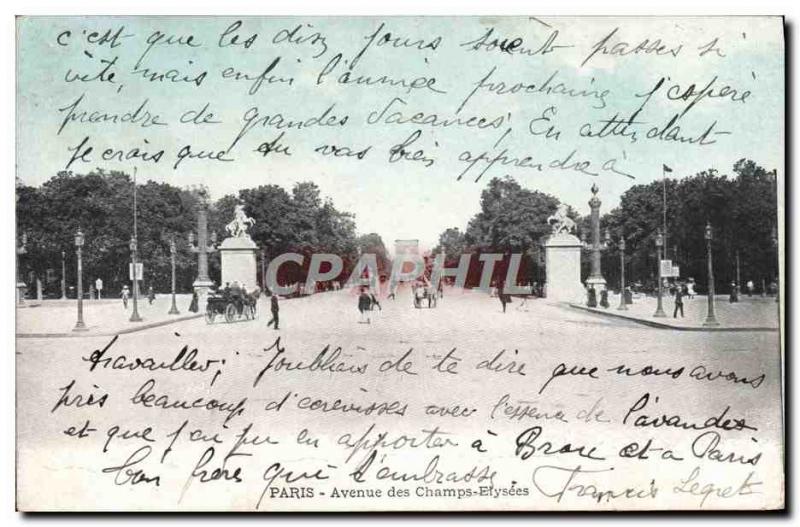 c'est que les dix jours soient passés si
vite, mais enfin l'année prochaine j'espère
prendre de grandes vacances, En attendant
je crois que tu vas bien apprendre à
CPARAMA
travailler; J'oubliais de te dire que nous avons
pris beaucoup d'écrevisses avec l'essence de lavandes
et que j'ai pu en apporter à et à Paris.
bon frère qui t'embrasse.
PARIS - Avenue des Champs-Elysées
Francis Legret